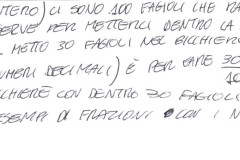 NTERO) CI SONO 100 FAGIOLI CHE
SERVE PER METTERCI DENTRO LA
METTO 30 FAGIOLI NEL BICCHIER
NUMERI DECIMALI) È PER FARE 30
10
CCHIERE CON DENTRO 30 FAGIOLI
ESEMPI DI FRAZIONI CON I N